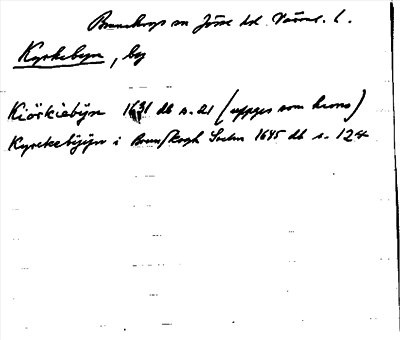 Brunskogs sn Jösse hd. Värml. l.
Kyrkebyn, by
Kiörkiebÿn 1631 db s. 21 (uppges som krono)
Kyrckebÿÿn i Brunskogh Sochn 1645 db s. 124